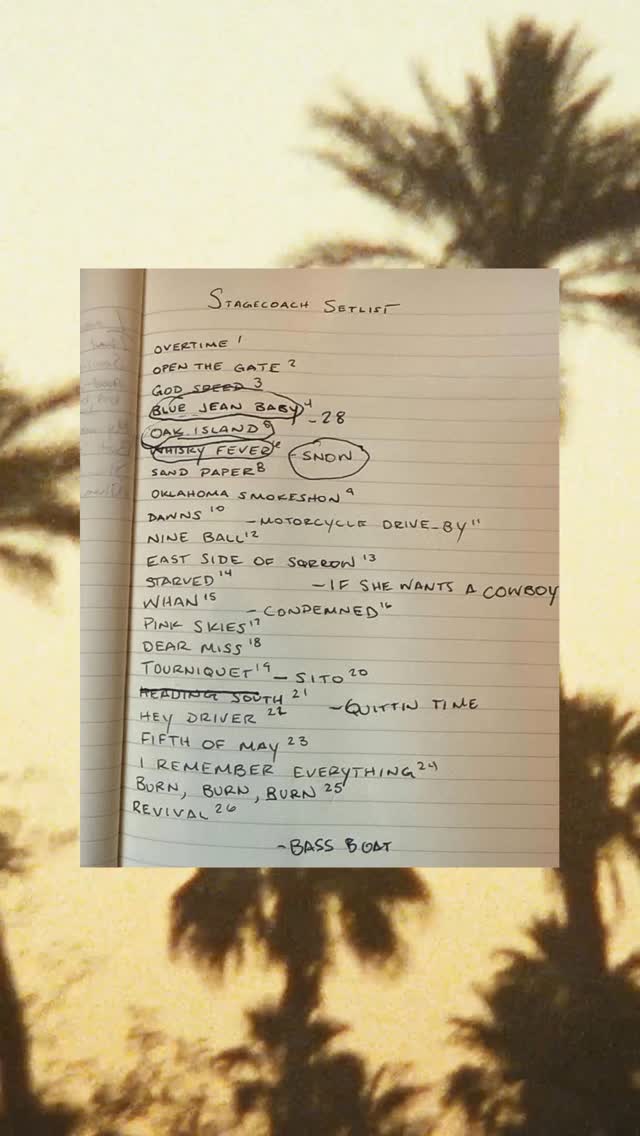 STAGECOACH SETLIST
OVERTIME 1
OPEN THE GATE 2
GOD SPEED 3
BLUE JEAN BABY 4
- 28
OAK ISLAND
WHISKY FEVER
- SNOW
SAND PAPER 8
OKLAHOMA SMOKESHON 9
DAWNS 10
- MOTORCYCLE DRIVE-BY 11
NINE BALL 12
EAST SIDE OF SORROW 13
STARVED 14
- IF SHE WANTS A COWBOY
WHAN 15
- CONDEMNED 16
PINK SKIES 17
DEAR MISS 18
TOURNIQUET 19 - SITO 20
HEADING SOUTH 21
- QUITTIN TIME
HEY DRIVER 22
FIFTH OF MAY 23
I REMEMBER EVERYTHING 24
BURN, BURN, BURN 25
REVIVAL 26
- BASS BOAT